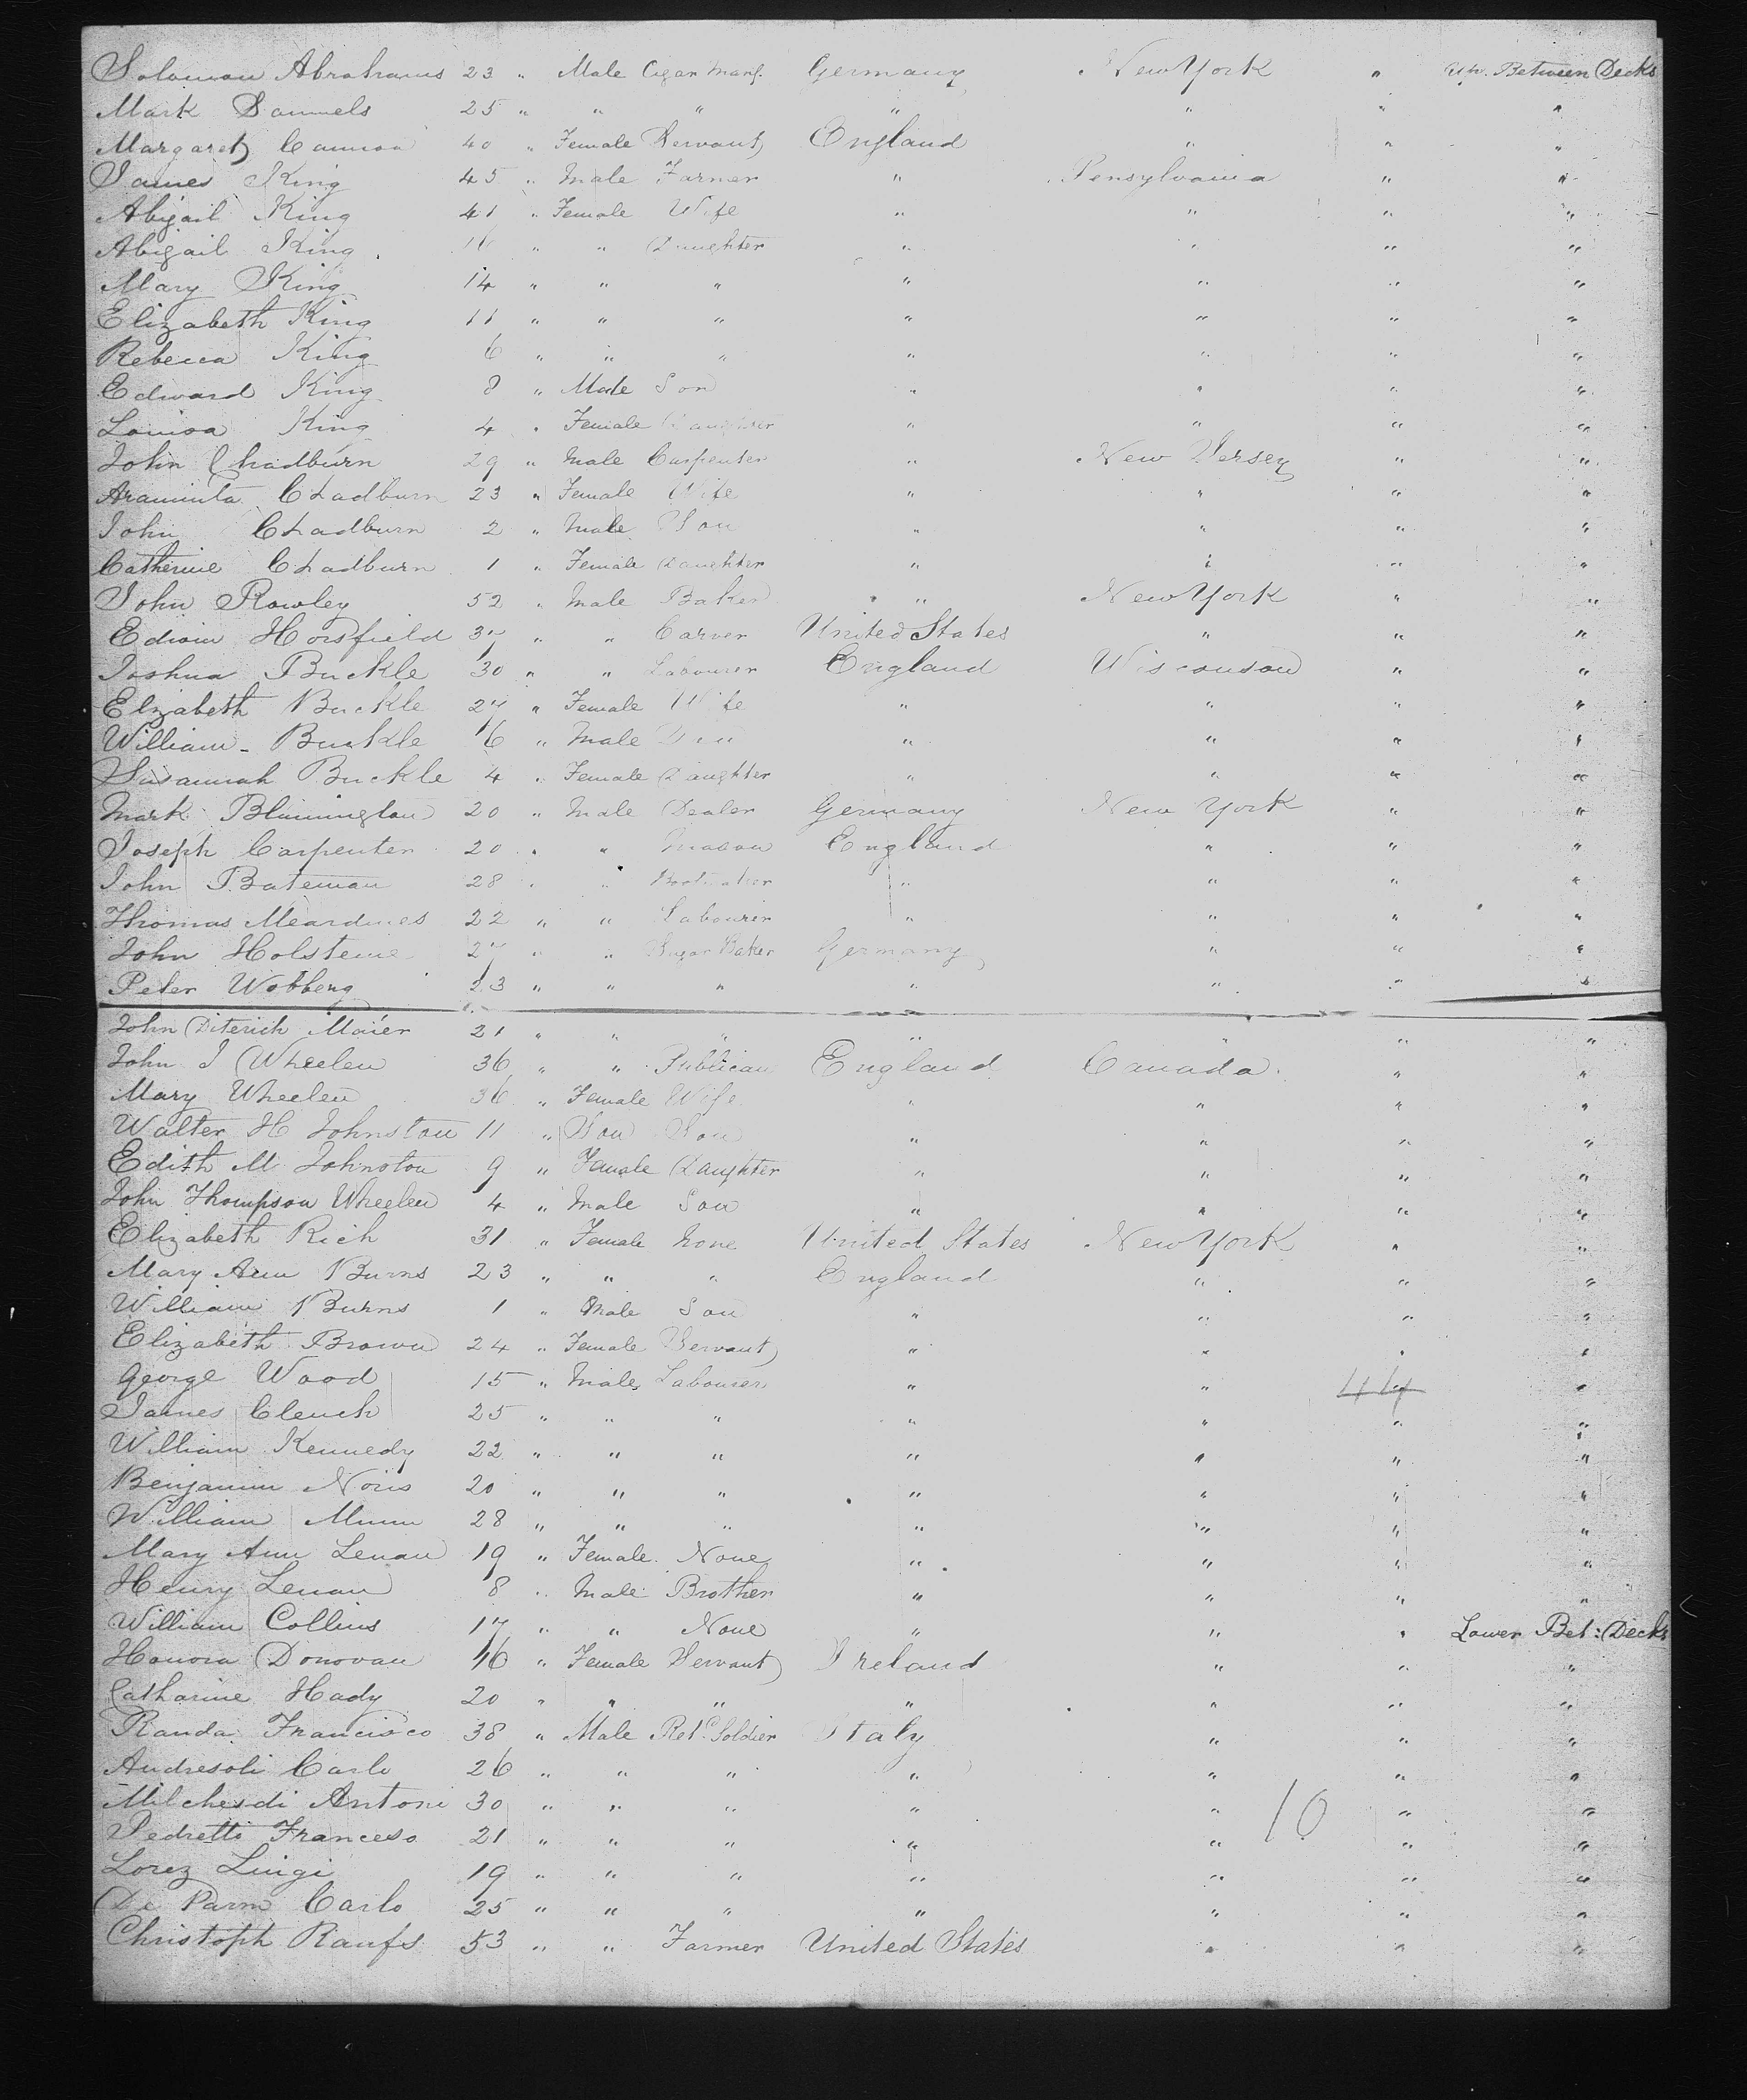 Soloman Abrahams 23 " Male Cigar Manf. Germany New York " Upr. Between Decks
Mark Samuels 25 " " " " " " "
Margaret Cannon 40 " Female Servant England " " "
James King 45 " Male Farmer " Pensylvania " "
Abigail King 41 " Female Wife " " " "
Abigail King 16 " " Daughter " " " "
Mary King 14 " " " " " " "
Elizabeth King 11 " " " " " " "
Rebecca King 6 " " " " " " "
Edward King 8 " Male Son " " " "
Louisa King 4 " Female Daughter " " " "
John Chadburn 29 " Male Carpenter " New Jersey " "
Araminta Chadburn 23 " Female Wife " " " "
John Chadburn 2 " Male Son " " " "
Catherine Chadburn 1 " Female Daughter " " " "
John Rowley 52 " Male Baker " New York " "
Edwin Horsfield 37 " " Carver United States " " "
Joshua Buckle 30 " " Labourer England Wisconson " "
Elizabeth Buckle 27 " Female Wife " " " "
William Buckle 6 " Male Son " " " "
Susannah Buckle 4 " Female Daughter " " " "
Mark Blimington 20 " Male Dealer Germany New York " "
Joseph Carpenter 20 " " Mason England " " "
John Bateman 28 " " Bootmaker " " " "
Thomas Meardines 22 " " Labourer " " " "
John Holsteine 27 " " Sugar Baker Germany " " "
Peter Wobbeng 23 " " " " " " "
John Diterich Maier 21 " " " " " " "
John J Wheelen 36 " " Publican England Canada " "
Mary Wheelen 36 " Female Wife " " " "
Walter H Johnston 11 " Son Son " " " "
Edith M Johnston 9 " Female Daughter " " " "
John Thompson Wheelen 4 " Male Son " " " "
Elizabeth Rich 31 " Female None United States New York " "
Mary Ann Burns 23 " " " England " " "
William Burns 1 " Male Son " " " "
Elizabeth Brown 24 " Female Servant " " " "
George Wood 15 " Male Labourer " " 44 "
James Clench 25 " " " " " " "
William Kennedy 22 " " " " " " "
Benjamin Noris 20 " " " " " " "
William Munn 28 " " " " " " "
Mary Ann Lenan 19 " Female None " " " "
Henry Lenan 8 " Male Brother " " " "
William Collins 17 " " None " " " Lower Bet: Decks
Honora Donovan 16 " Female Servant Ireland " " "
Catharine Hady 20 " " " " " " "
Randa Francisco 38 " Male Retd Soldier Italy " " "
Andresoli Carlo 26 " " " " " " "
Milchesdi Antoni 30 " " " " " 10 " "
Pedretti Franceso 21 " " " " " " "
Lorez Luigi 19 " " " " " " "
De Parm Carlo 25 " " " " " " "
Christoph Raufs 53 " " Farmer United States " " "